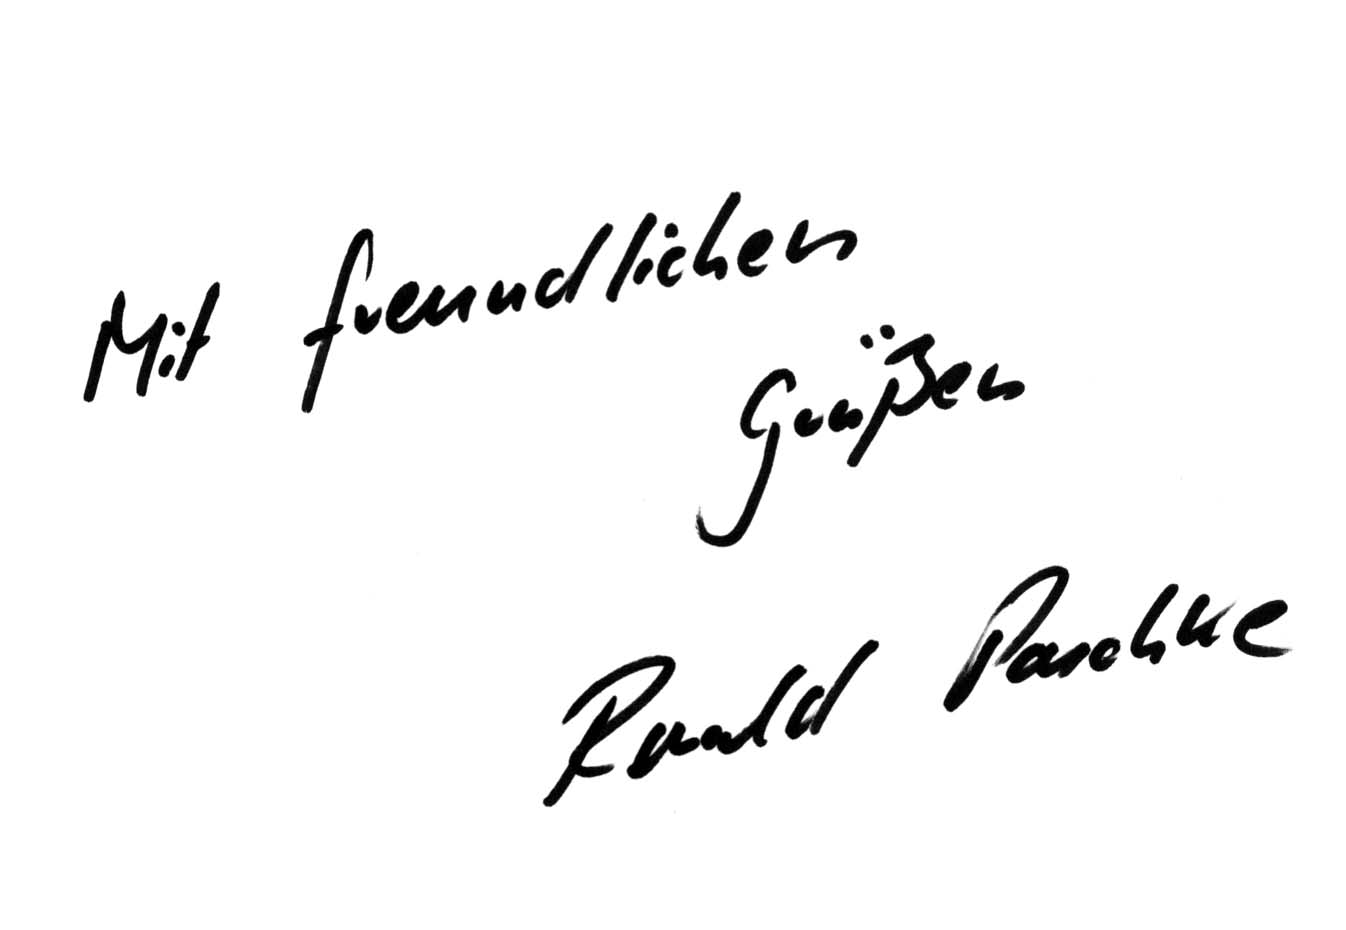 Mit freundlichen
Grüßen
Ronald Paschke